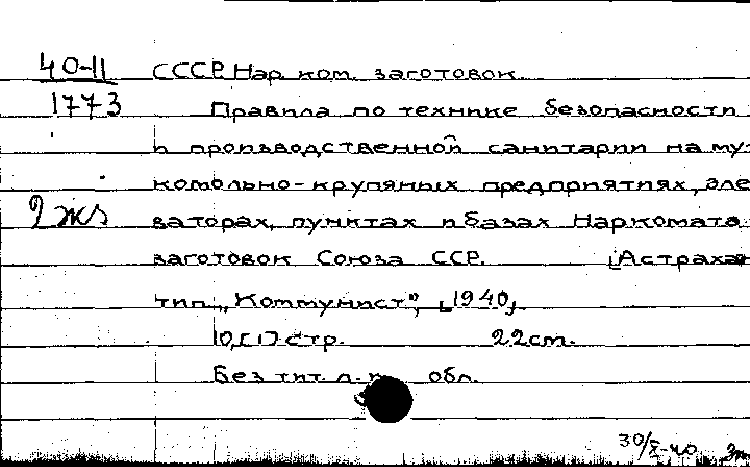 40-11 СССР. Нар. ком. заготовок.
1773 Правила по технике безопасности
и производственной санитарии на му-
комольно-крупяных предприятиях, эле-
2 экз ваторах, пунктах и базах Наркомата
заготовок Союза ССР. [Астрахан
тип. „Коммунист”, [1940]
10,[1] стр. 22 см.
Без тит. л. обл.
30/X-40